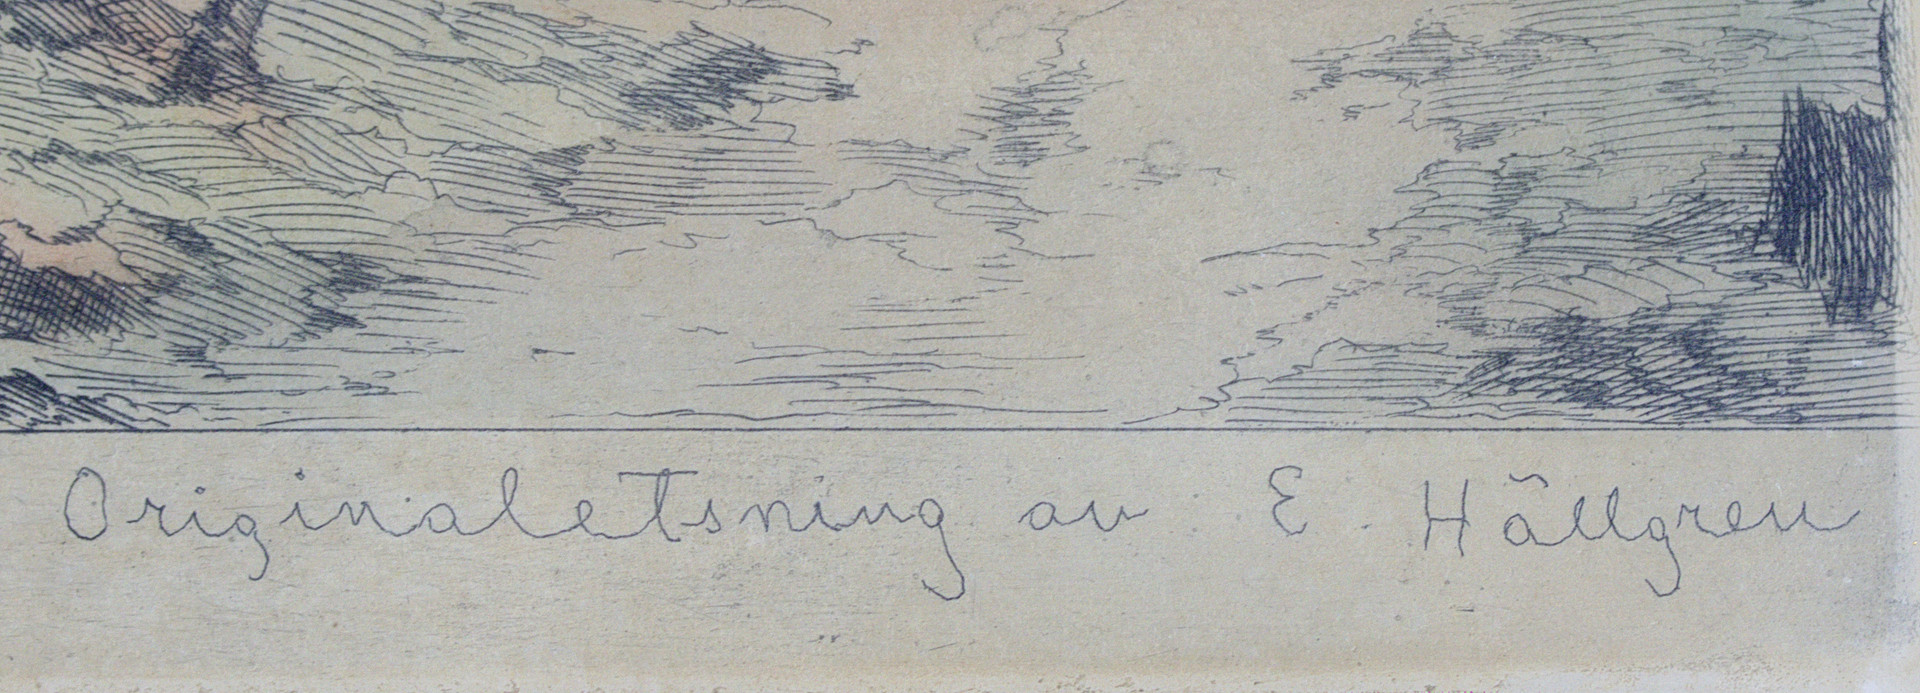 Originaletsning av E Hällgren